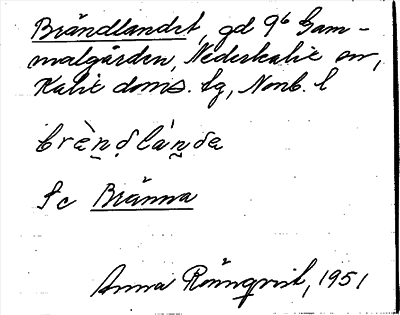 Brändlandet, gd 9⁶ Gam-
malgården, Nederkalix sn,
Kalix doms. lg, Norrb. l
brὲn̥dlán̥da
Se Bränna
Anna Rönnqvist, 1951